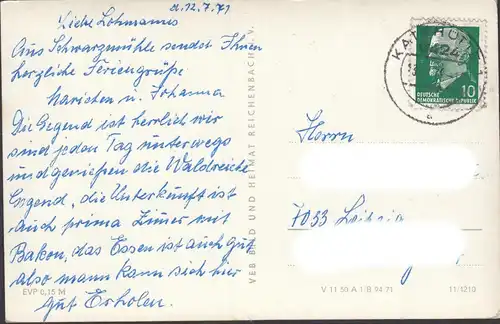 d. 12.7.71
Liebe Lohmanns
Aus Schwarzmühle sendet Ihnen
herzliche Feriengrüße
u. Johanna
Die Gegend ist herrlich wir
sind jeden Tag unterwegs
und genießen die Waldreiche
Gegend, die Unterkünft ist
auch prima Zimer mit
Balkon, das Essen ist auch gut
also mann kann sich hier
gut Erholen.
EVP 0,15 M
VEB BILD UND HEIMAT REICHENBACH I. V.
KATZHÜTTE
a
10
DEUTSCHE
DEMOKRATISCHE REPUBLIK
Herrn
7033 Leipzig
V 11 50 A 1/B 94 71
11/1210